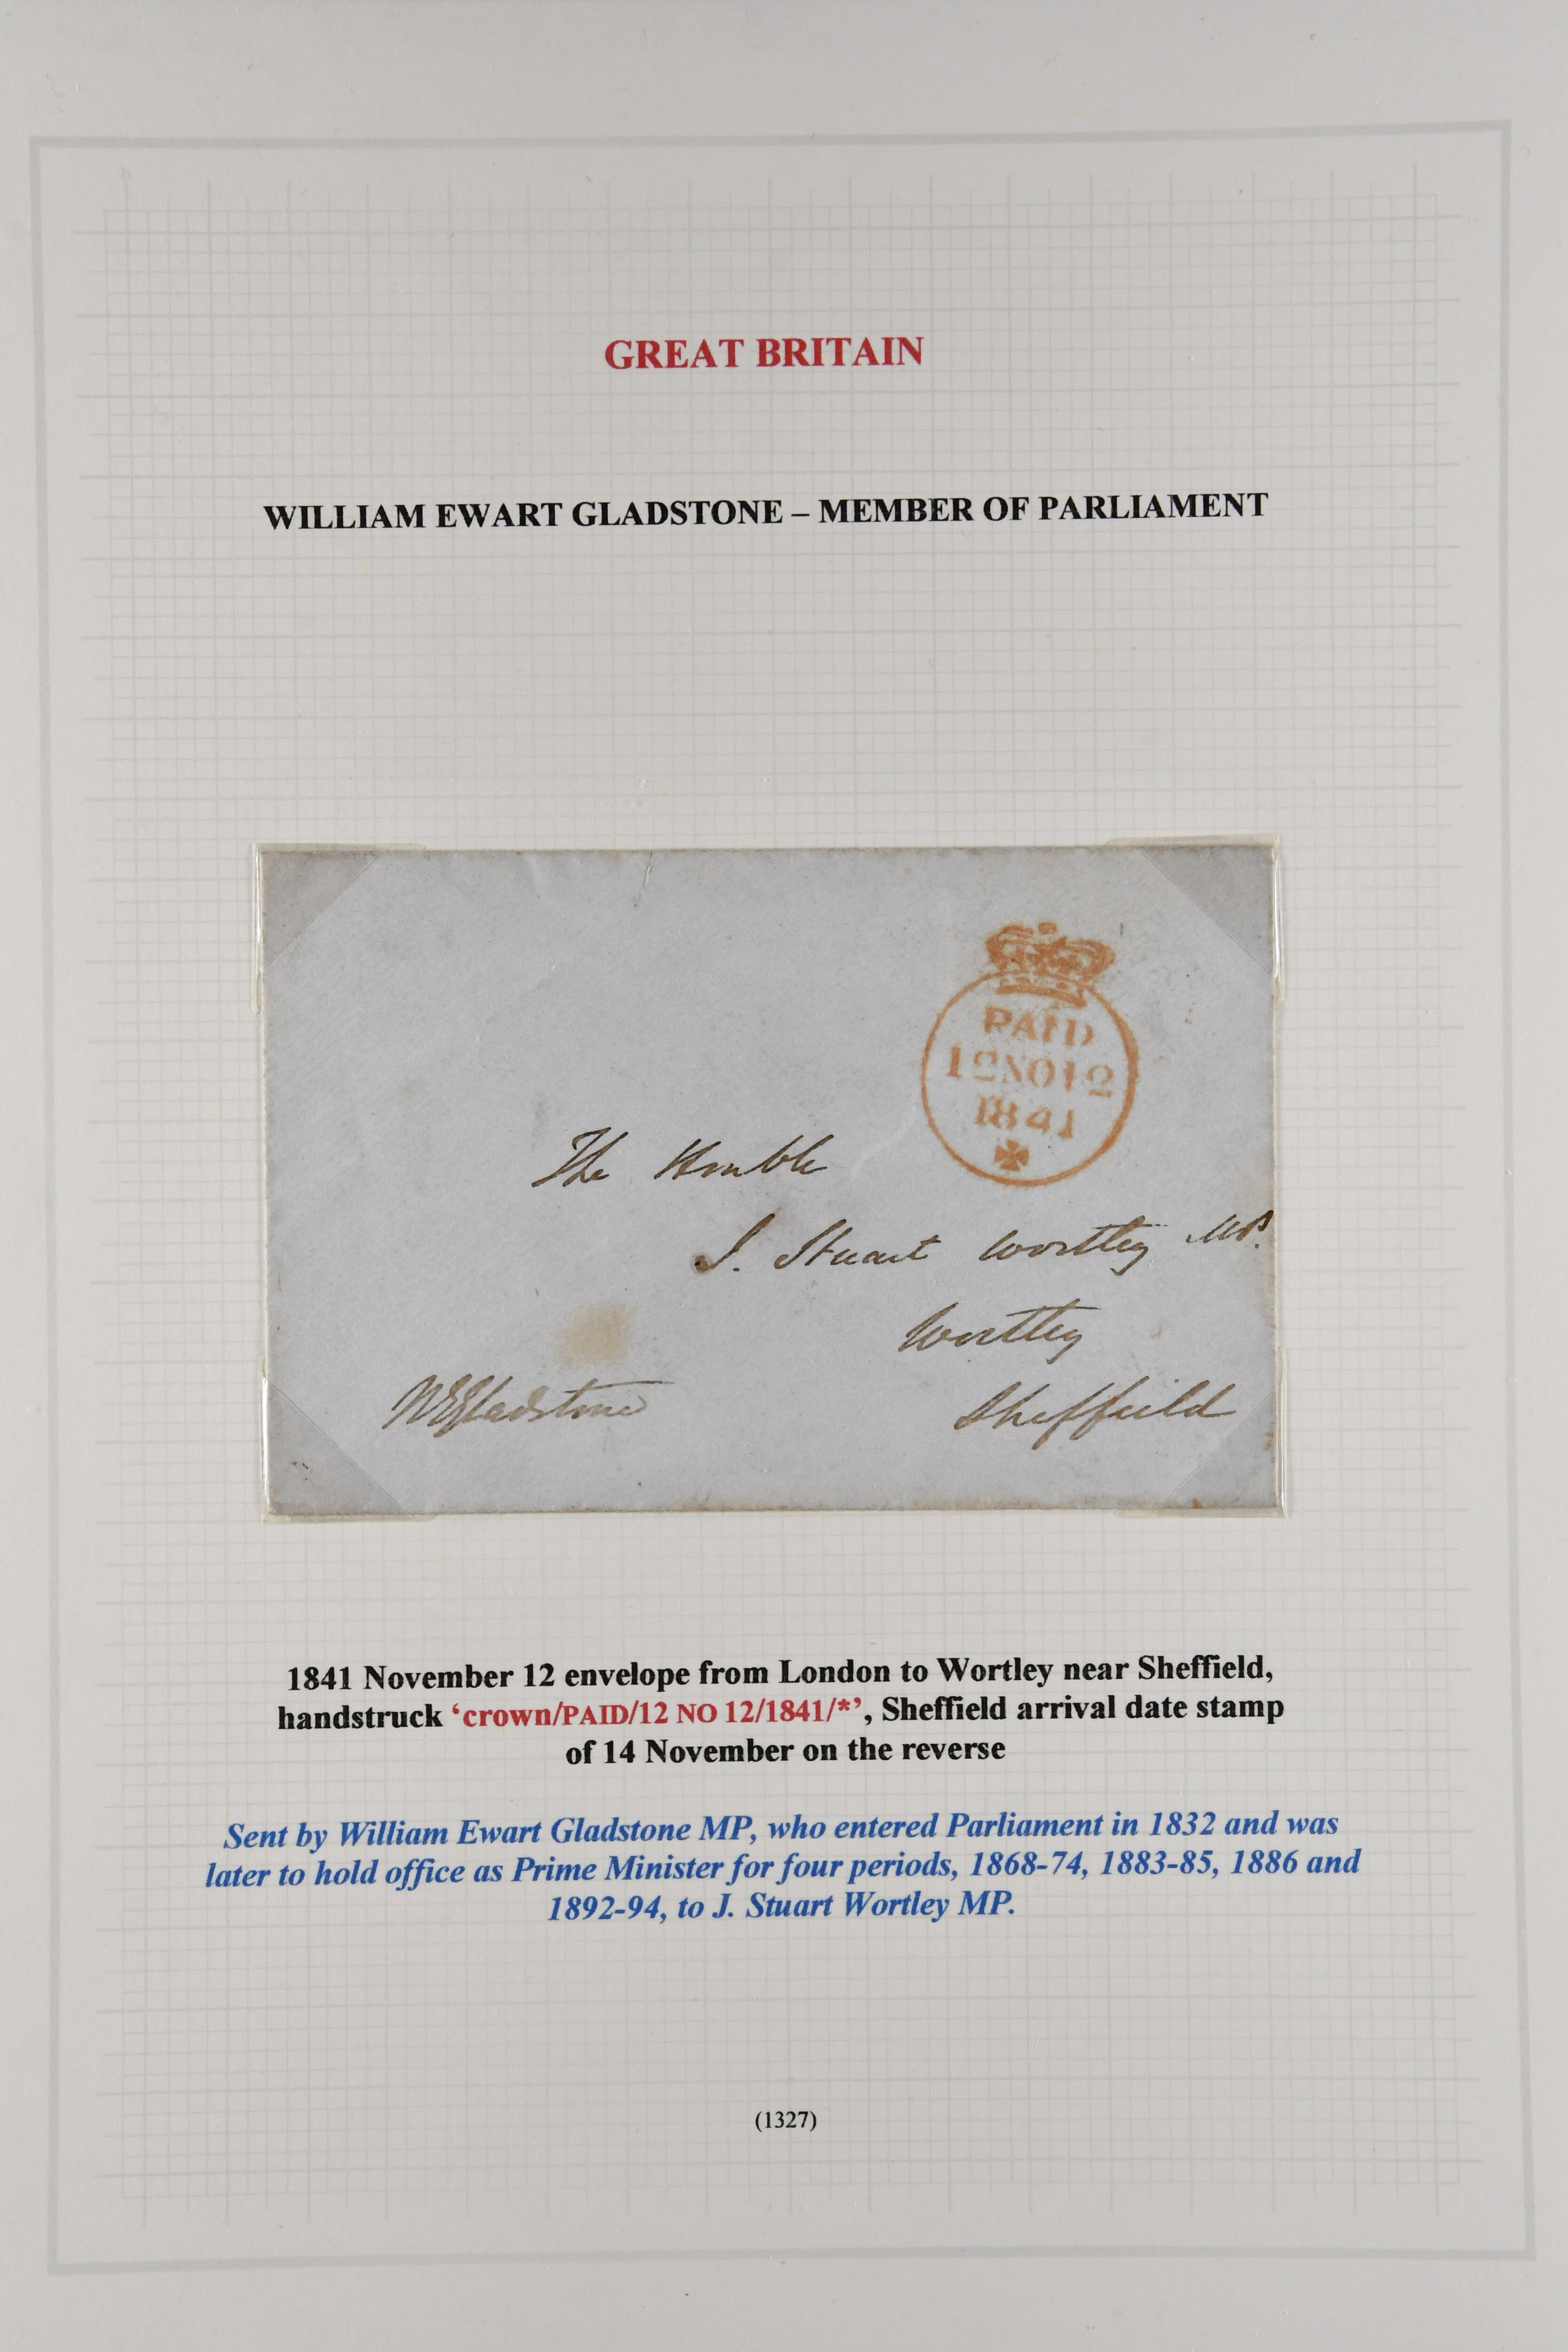 GREAT BRITAIN
WILLIAM EWART GLADSTONE – MEMBER OF PARLIAMENT
PAID
12NO12
1841
The Honble
J. Stuart Wortley MP.
Wortley
WEGladstone
Sheffield
1841 November 12 envelope from London to Wortley near Sheffield,
handstruck ‘crown/PAID/12 NO 12/1841/*’, Sheffield arrival date stamp
of 14 November on the reverse
Sent by William Ewart Gladstone MP, who entered Parliament in 1832 and was
later to hold office as Prime Minister for four periods, 1868-74, 1883-85, 1886 and
1892-94, to J. Stuart Wortley MP.
(1327)